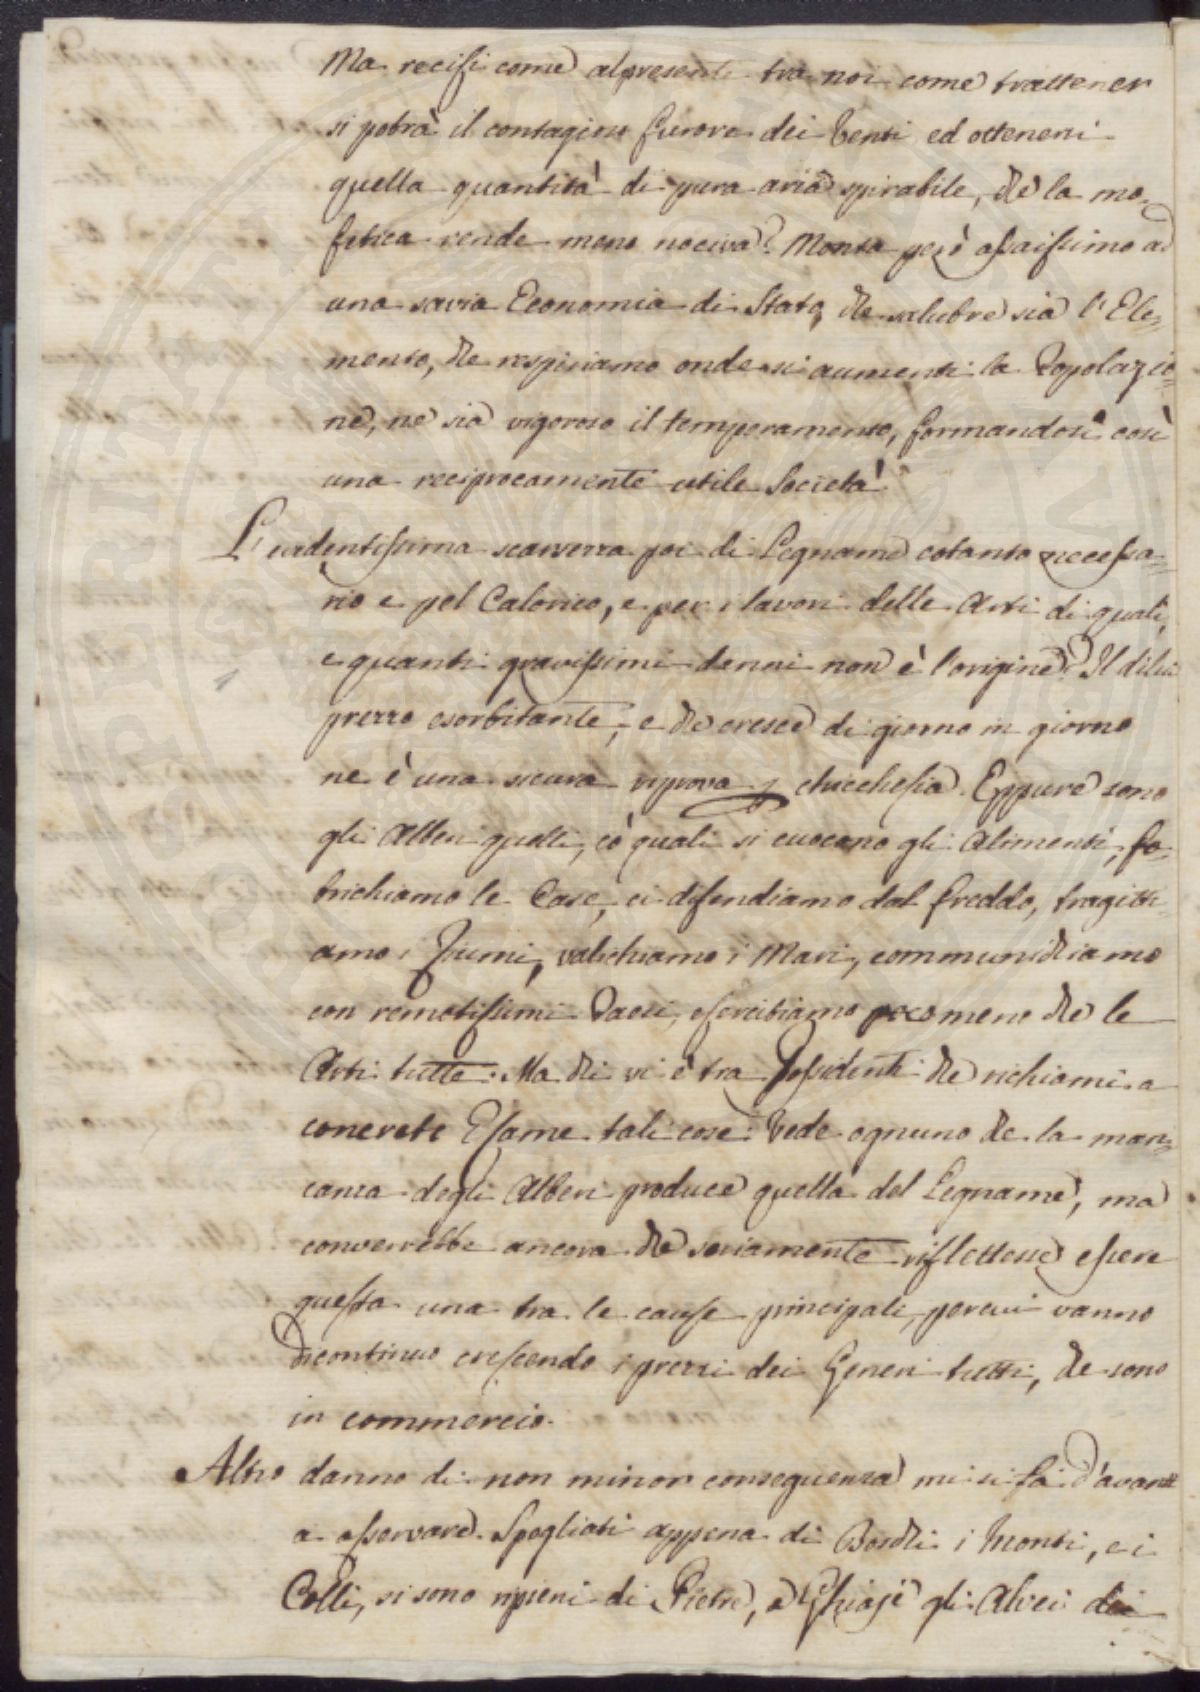 Ma recisi come al presente tra noi come trattener
si potrà il contagioso furore dei Venti ed ottenersi
quella quantità di pura aria spirabile, che la mo-
fetica rende meno nociva? Monta però assaissimo ad
una savia Economia di Stato, che salubre sia l'Ele-
mento, che respiriamo onde si aumenti la Popolazio-
ne, ne sia vigoroso il temperamento, formandosi così
una reciprocamente utile Società.
L'evidentissima scarsezza poi di Legname cotanto necessa-
rio e pel Calorico, e per i lavori delle Arti di quali,
e quanti gravissimi danni non è l'origine? Il di lui
prezzo esorbitante, e che cresce di giorno in giorno
ne è una sicura riprova p chicchesia. Eppure sono
gli Alberi quelli, co' quali si cuocono gli Alimenti, fa-
brichiamo le Case, ci difendiamo dal freddo, tragitti-
amo i Fiumi, valichiamo i Mari, communichiamo
con remotissimi Paesi, esercitiamo poco meno che le
Arti tutte. Ma chi vi è tra Possidenti che richiami a
concreto Esame tali cose: Vede ognuno che la man-
canza degli Alberi produce quella del Legname, ma
converrebbe ancora che seriamente riflettesse essere
questa una tra le cause principali, per cui vanno
di continuo crescendo i prezzi dei Generi tutti, che sono
in commercio.
Altro danno di non minor conseguenza mi si fà d'avanti
a osservare. Spogliati appena di Boschi i Monti, e i
Colli, si sono ripieni di Pietre, e Ghiaje gli Alvei dei